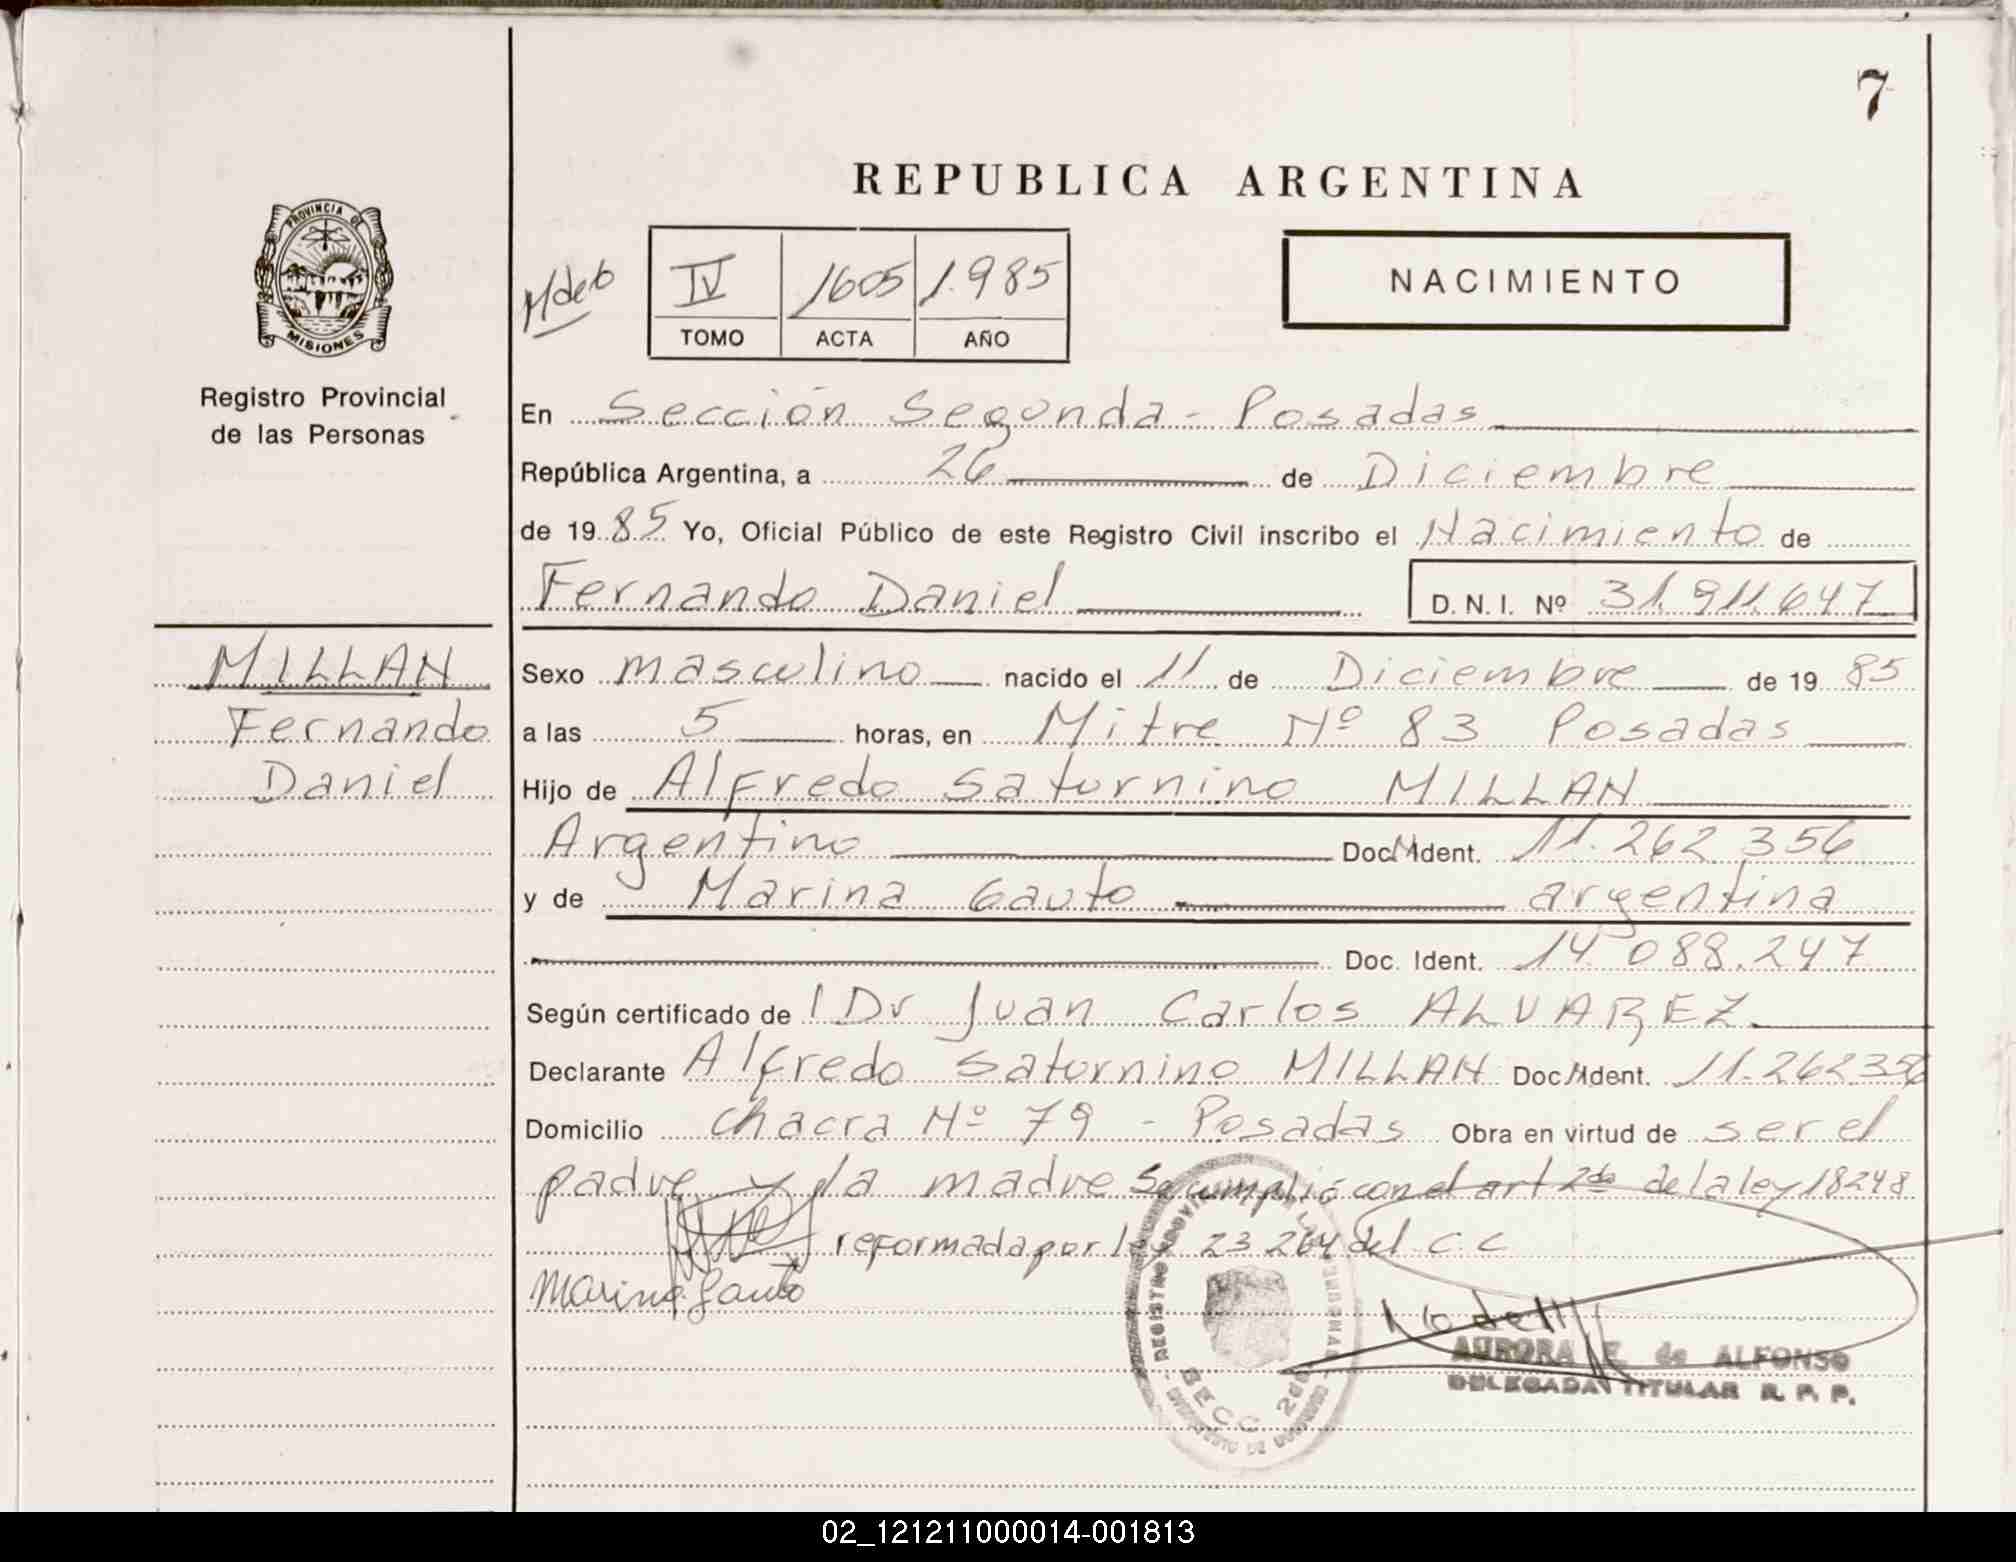 7
REPUBLICA ARGENTINA
PROVINCIA DE
MISIONES
Registro Provincial
de las Personas
IV 1605 1.985
TOMO ACTA AÑO
NACIMIENTO
En Sección Segunda - Posadas
República Argentina, a 26 de Diciembre
de 19 85 Yo, Oficial Público de este Registro Civil inscribo el Nacimiento de
Fernando Daniel D. N. I. Nº 31.911.647
MILLAN
Fernando
Daniel
Sexo masculino nacido el 11 de Diciembre de 19 85
a las 5 horas, en Mitre Nº 83 Posadas
Hijo de Alfredo Saturnino MILLAN
Argentino Doc. Ident. 11.262.356
y de Marina Gauto argentina
Doc. Ident. 14.088.247
Según certificado de Dr Juan Carlos ALVAREZ
Declarante Alfredo Saturnino MILLAN Doc. Ident. 11.262.356
Domicilio chacra Nº 79 - Posadas Obra en virtud de ser el
padre y la madre Se cumplió con el art 2do de la ley 18248
reformada por ley 23 264 del C. C
Marina Gauto
REGISTRO PROVINCIAL DE LAS PERSONAS
SECC 2da
AURORA E. de ALFONSO
DELEGADA TITULAR R. P. P.
02_121211000014-001813